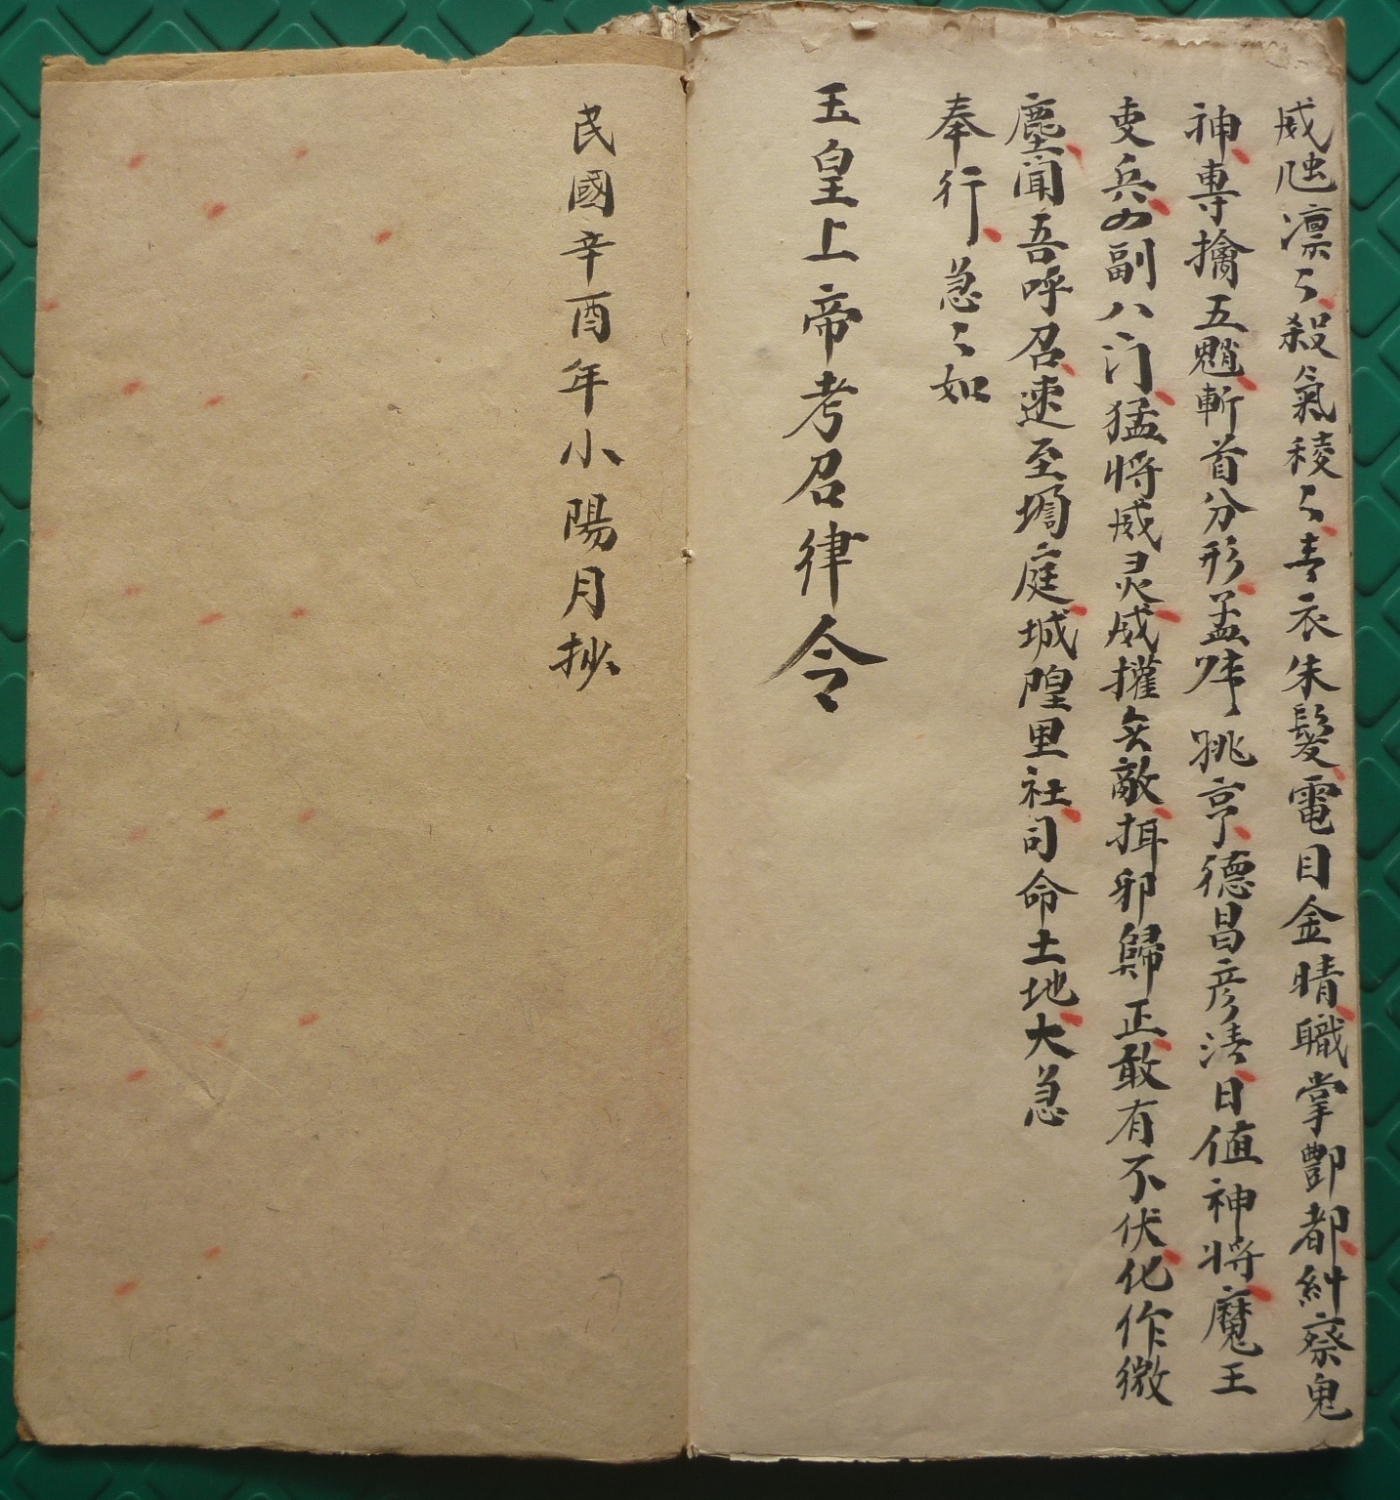 威㐌凛〻殺氣稜〻青衣朱髮電目金晴職掌酆都糾察鬼
神專擒五魈斬首分形孟咩跳亨德昌彦清日值神将魔王
吏兵四副八门猛将威灵威㩲无敵揖邪歸正敢有不伏化作微
塵闻吾呼召速至壇庭城隍里社司命土地大急
奉行急〻如
玉皇上帝考召律令
民國辛酉年小陽月抄